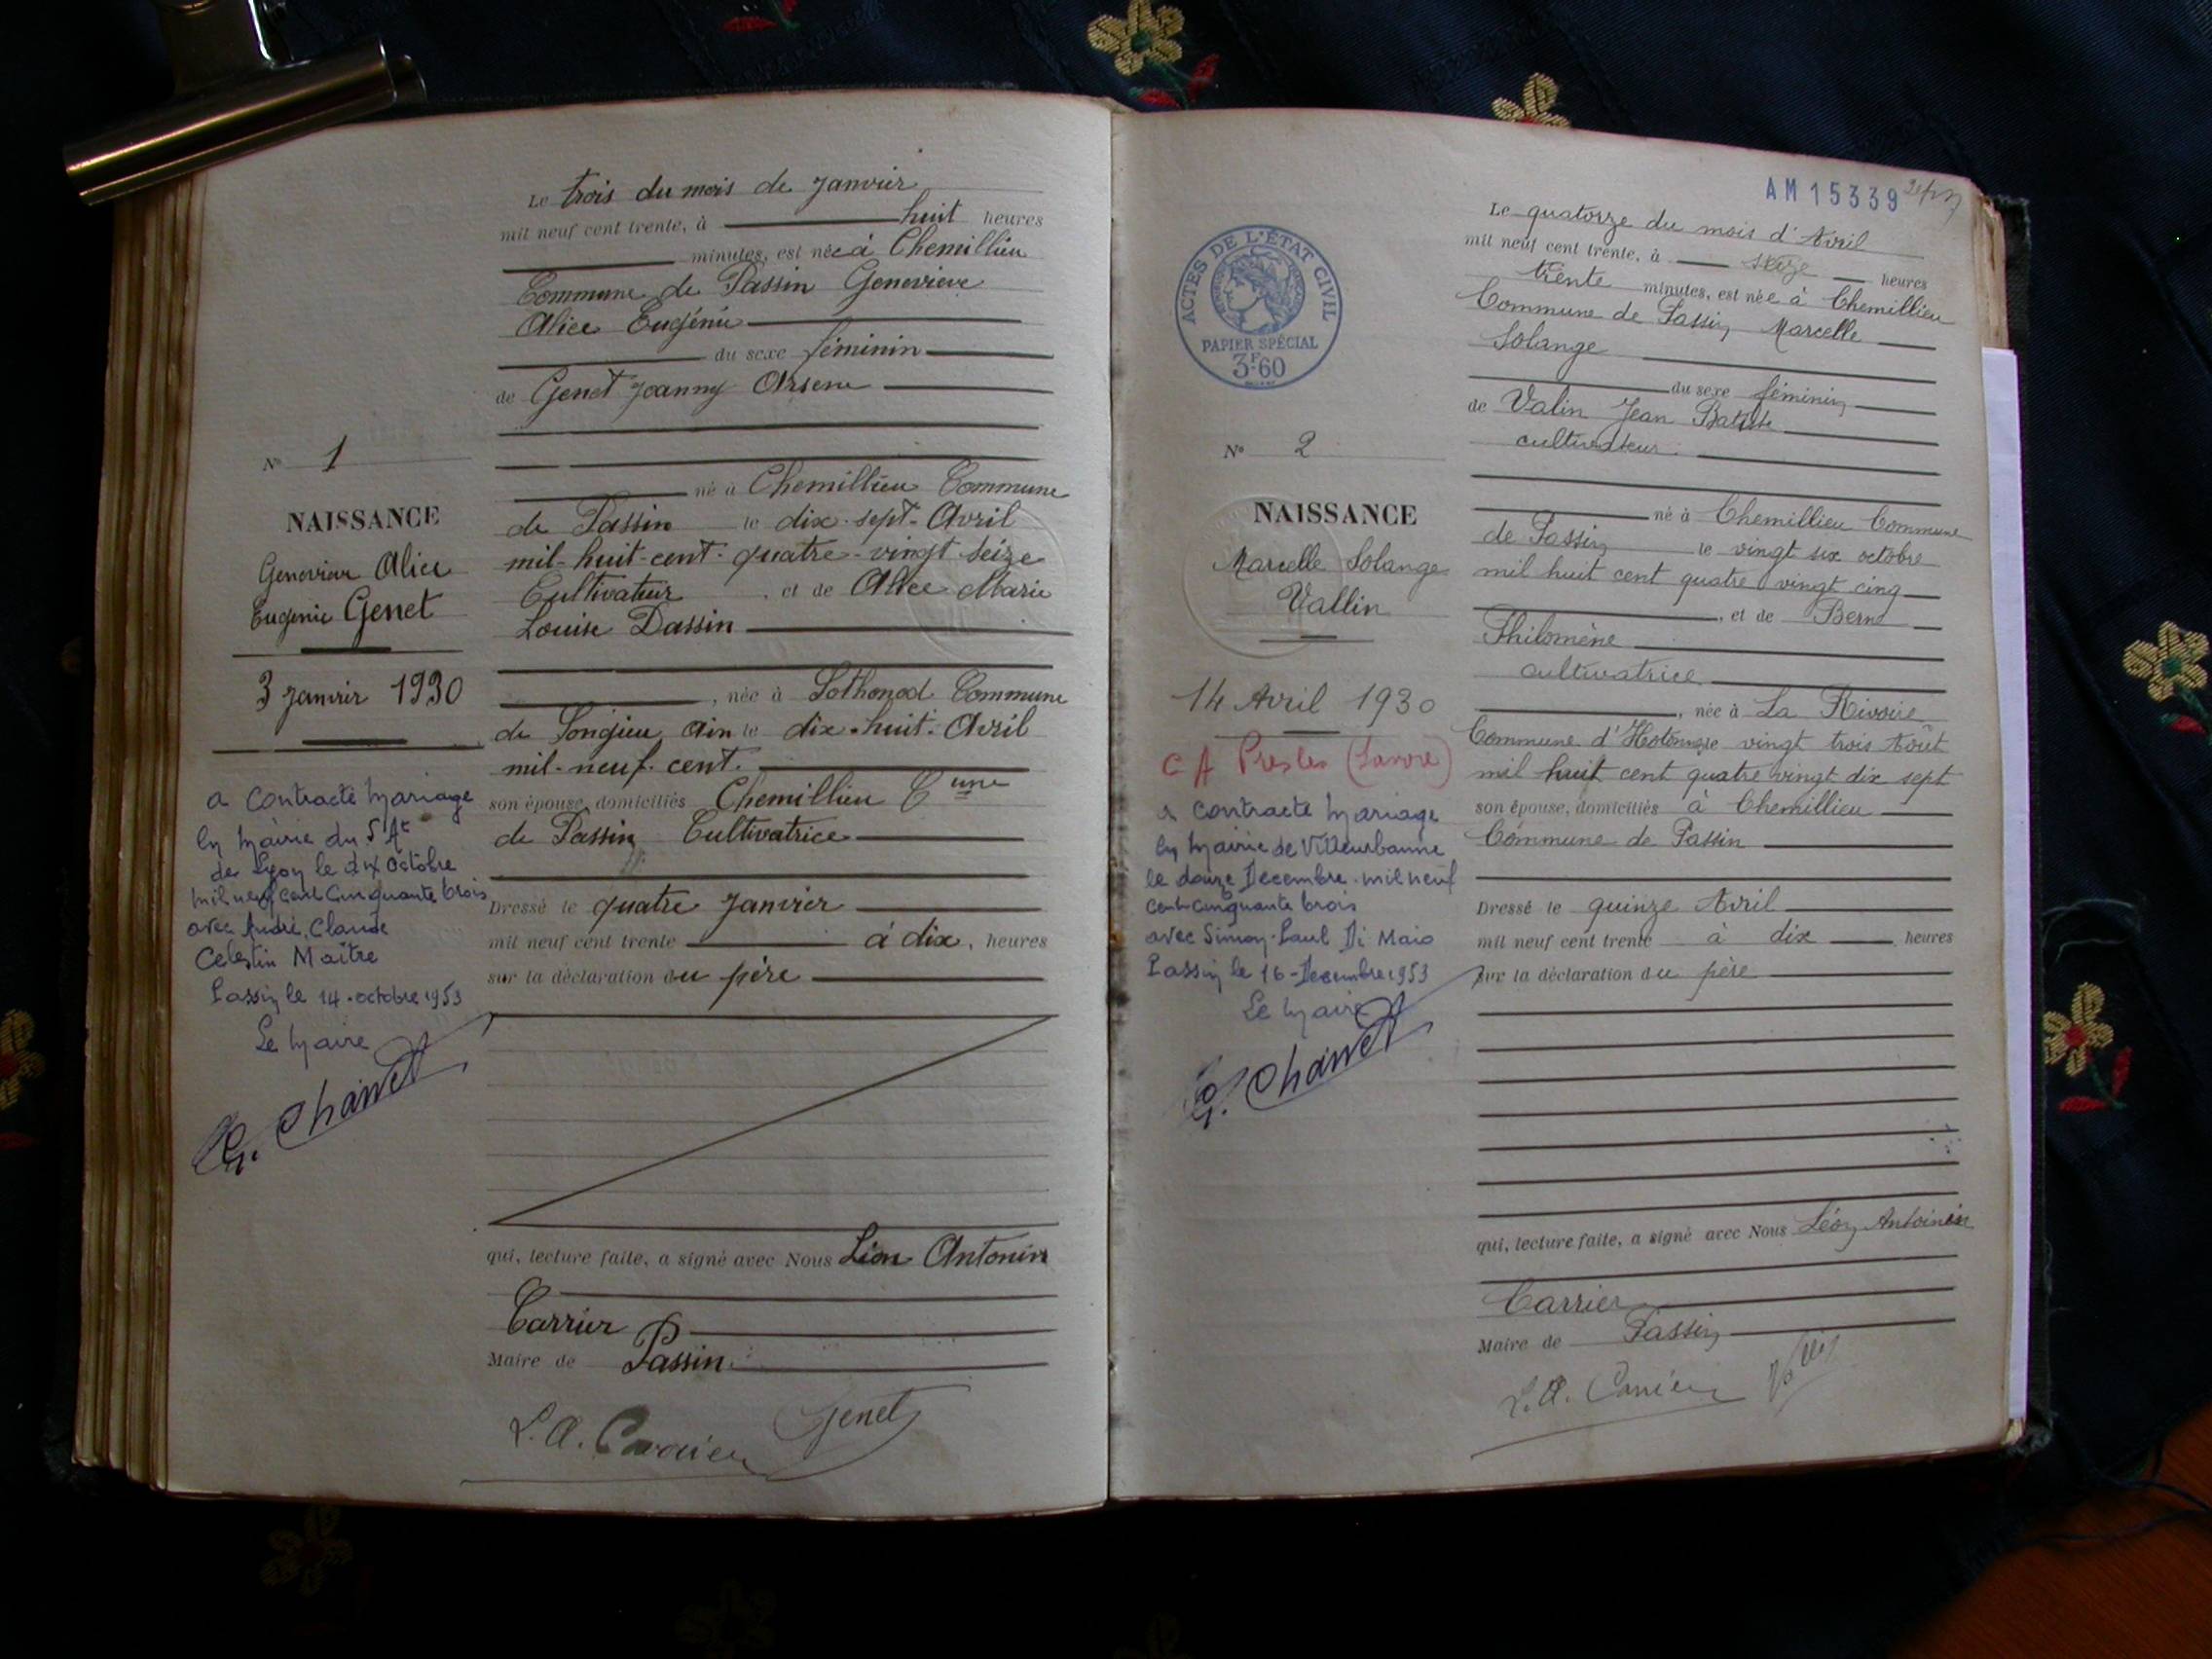 Le trois du mois de Janvier
mil neuf cent trente, à huit heures
minutes, est née à Chemillieu
Commune de Passin Genevieve
Alice Eugénie
du sexe féminin
de Genet Joanny Arsene
né à Chemillieu Commune
de Passin le dix-sept Avril
mil-huit-cent-quatre-vingt seize
Cultivateur, et de Alice Marie
Louise Dassin
, née à Sothonod Commune
de Songieu Ain le dix-huit Avril
mil-neuf-cent.
son épouse, domiciliés Chemillieu Cune
de Passin Cultivatrice
Dressé le quatre Janvier
mil neuf cent trente à dix, heures
sur la déclaration du père
qui, lecture faite, a signé avec Nous Léon Antonin
Carrier
Maire de Passin
L. A. Carrier Genet
No 1
NAISSANCE
Genevieve Alice
Eugenie Genet
3 Janvier 1930
a contracté mariage
en mairie du 5 At
de Lyon le dix octobre
mil neuf cent cinquante trois
avec André, Claude
Celestin Maître
Passin le 14 octobre 1953
Le maire
G. Chanel
AM 15339
ACTES DE L'ÉTAT CIVIL
PAPIER SPÉCIAL
3F.60
No 2
NAISSANCE
Marcelle Solange
Vallin
14 Avril 1930
à Presles (Savoie)
a contracté mariage
en mairie de Villeurbanne
le douze Decembre mil neuf
cent cinquante trois
avec Simon-Paul Di Maio
Passin le 16-Decembre 1953
Le maire
G. Chanel
Le quatorze du mois d'Avril
mil neuf cent trente, à seize heures
trente minutes, est née à Chemillieu
Commune de Passin Marcelle
Solange
du sexe féminin
de Valin Jean Batiste
cultivateur
né à Chemillieu Commune
de Passin le vingt six octobre
mil huit cent quatre vingt cinq
, et de Berne
Philomène
cultivatrice
, née à La Rivoire
Commune d'Hotonnes le vingt trois Août
mil huit cent quatre vingt dix sept
son épouse, domiciliés à Chemillieu
Commune de Passin
Dressé le quinze Avril
mil neuf cent trente à dix heures
sur la déclaration du père
qui, lecture faite, a signé avec Nous Léon Antoinin
Carrier
Maire de Passin
L. A. Carrier